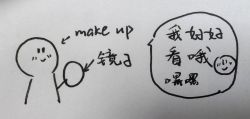 make up
镜子
我好好
看哦
嘿嘿